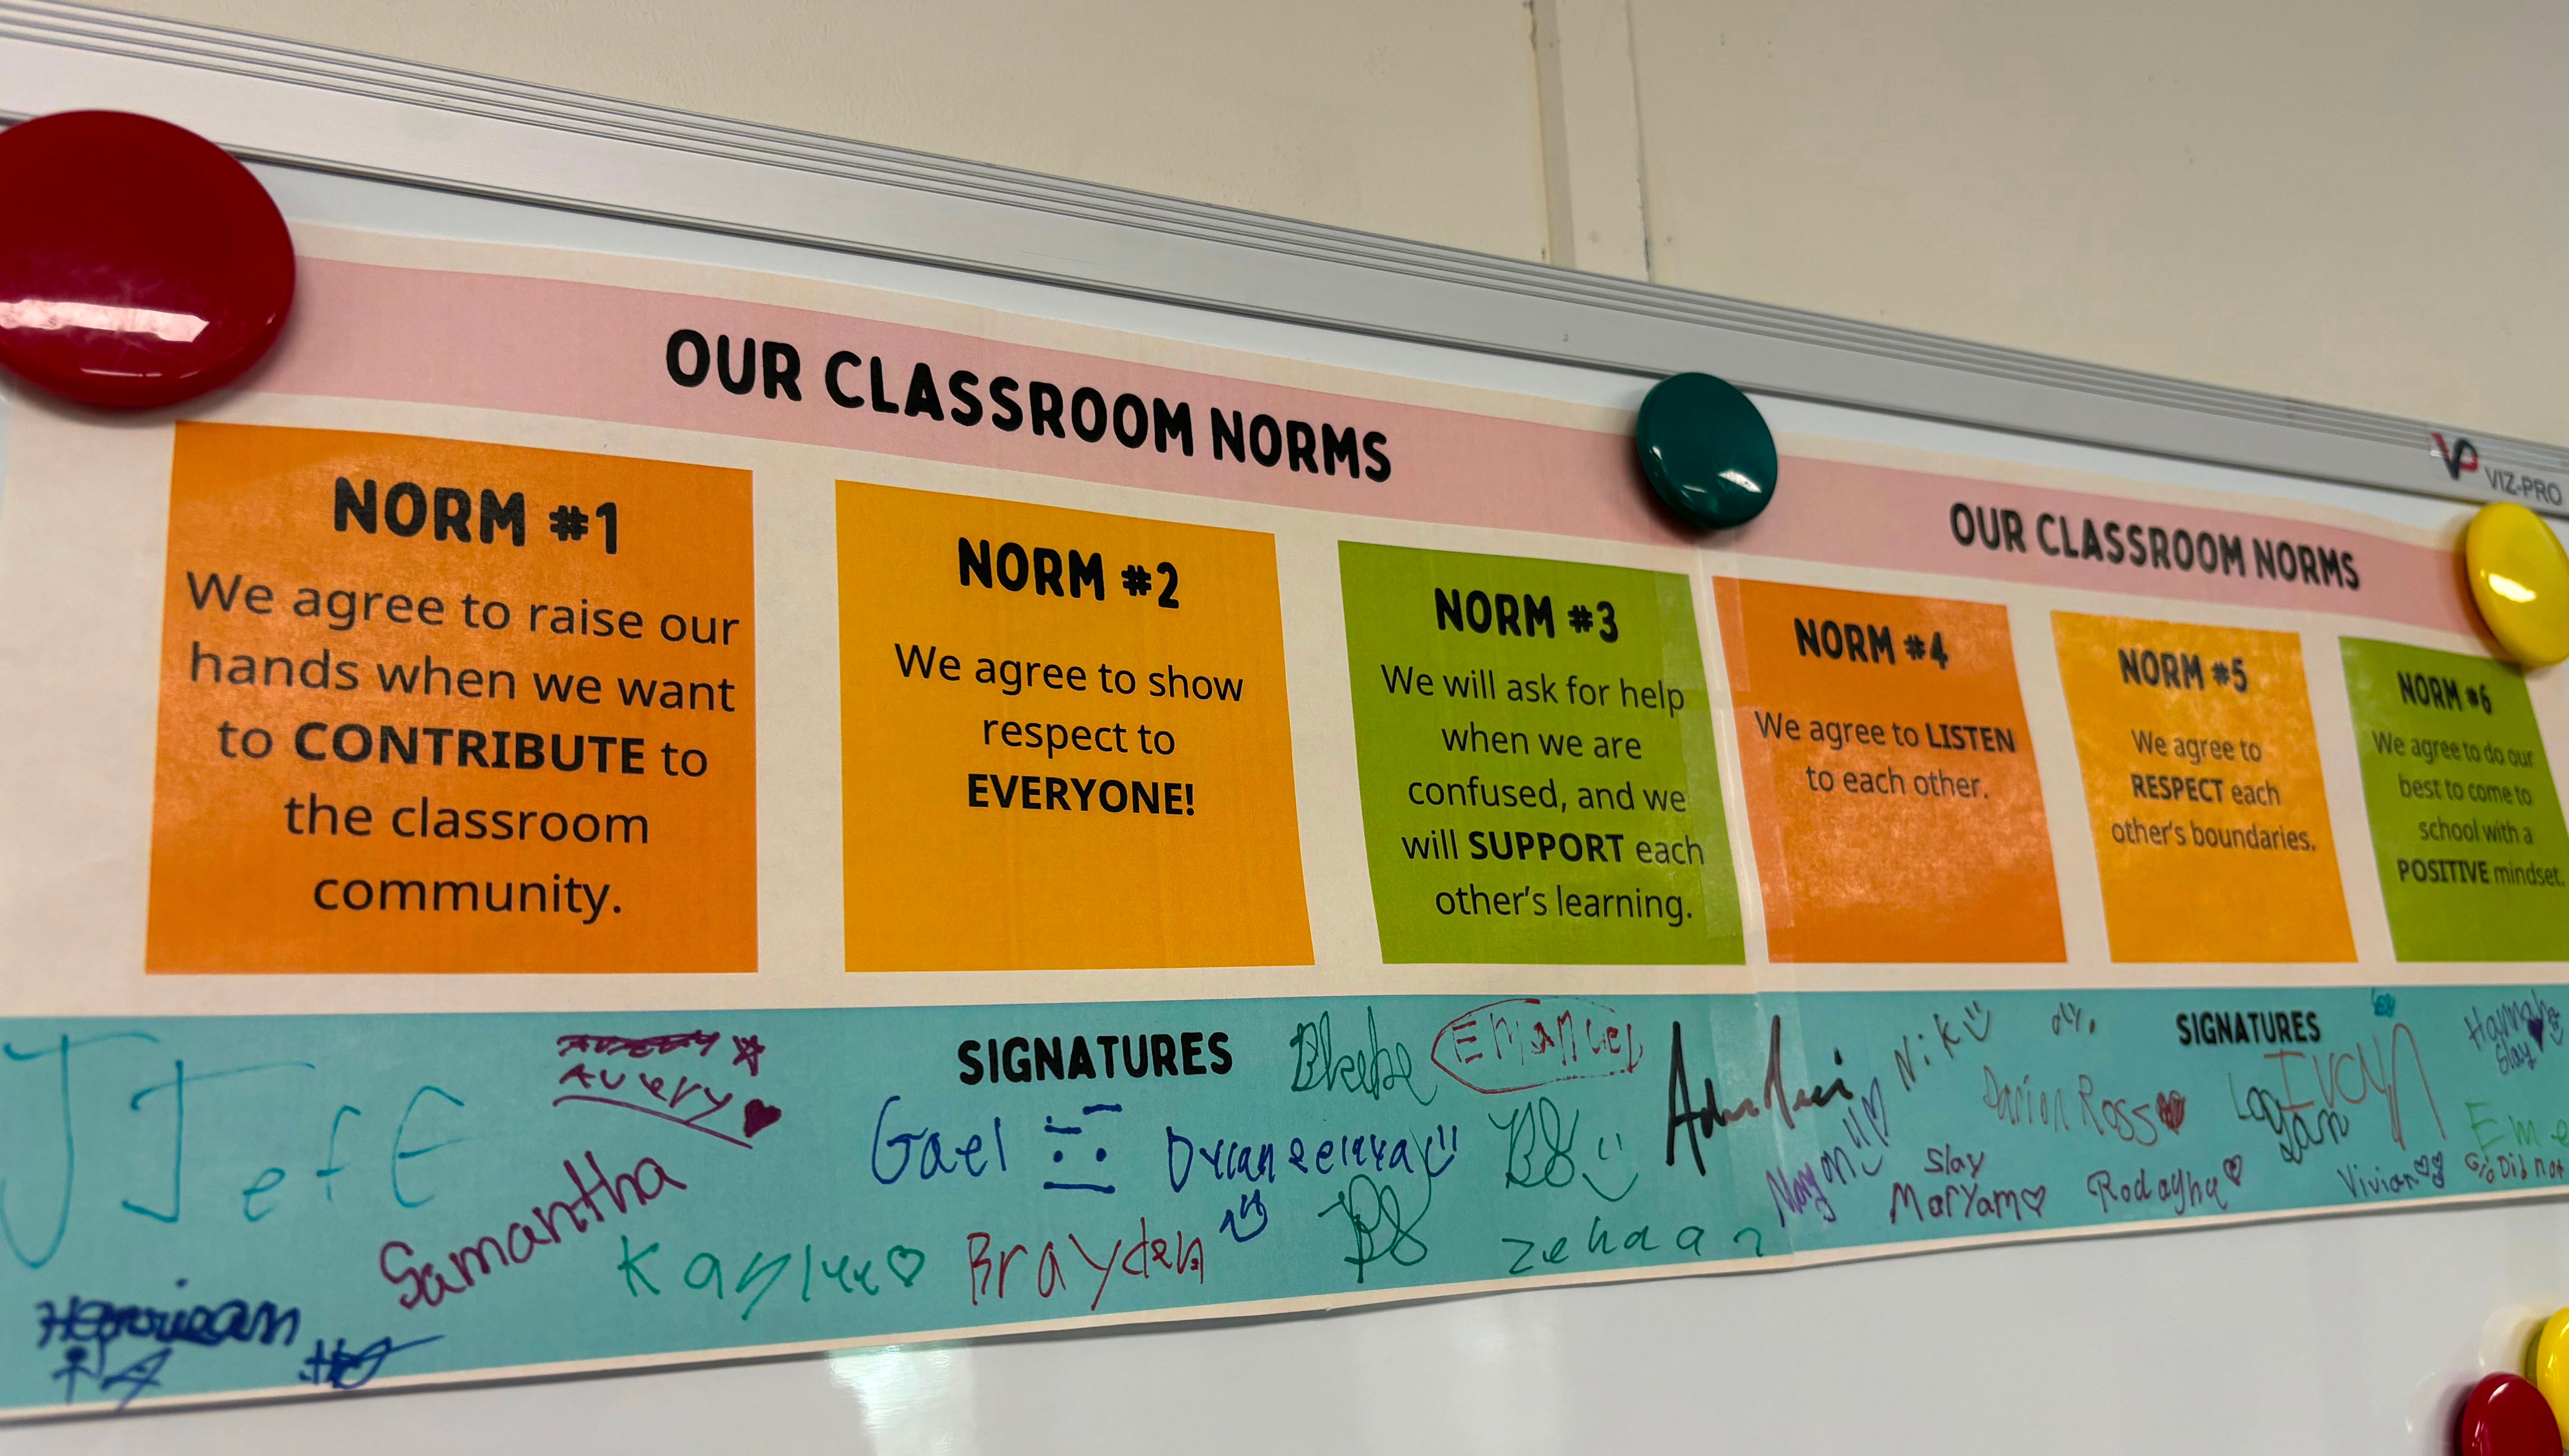 OUR CLASSROOM NORMS
NORM #1
We agree to raise our
hands when we want
to CONTRIBUTE to
the classroom
community.
NORM #2
We agree to show
respect to
EVERYONE!
NORM #3
We will ask for help
when we are
confused, and we
will SUPPORT each
other's learning.
OUR CLASSROOM NORMS
NORM #4
We agree to LISTEN
to each other.
NORM #5
We agree to
RESPECT each
other's boundaries.
NORM #6
We agree to do our
best to come to
school with a
POSITIVE mindset.
VIZ-PRO
SIGNATURES
JefE
Avery
Samantha
Gael
Emanuel
Kaylee
Brayden
Zehaan
SIGNATURES
Nik
Darion Ross
Logan
Ivan
Hannah
Slay
Slay
Maryam
Rodayna
Vivian